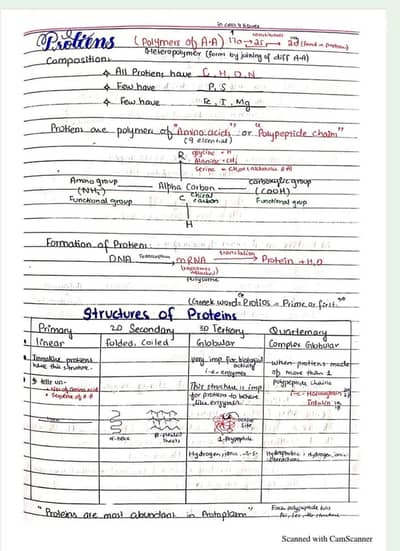 in cells & tissues
Protiens (Polymers of A.A) 170 → 25 → 20 (found in protiens)
Heteropolymer (form by joining of diff A-A)
Composition:
All Protiens have C, H, O, N
Few have P, S
Few have Fe, I, Mg
Protiens are polymers of "Amino acids" or "Polypeptide chain"
R glycine = H
Alanine = CH₃
Serine =
Amino group Alpha Carbon Carboxylic group
(NH₂) C Chiral carbon (COOH)
Functional group Functional grup
H
Formation of Protien:
DNA Transcription mRNA translation → Protein + H₂O
(ribosomes attached)
Polysome
(Greek word = Protios = Prime or first)
Structures of Proteins
Primary 2D Secondary 3D Tertiary Quarternary
linear Folded, Coiled Globular Complex Globular
have this structure. Very imp for biological activity i-e enzymes when protiens made of more than 1 polypeptide chains
It tells us:- This structure is imp for protein to behave like enzymes. i-e- Haemoglobin
No. of Amino acid Insulin
Sequence of A.A
Active site
α-helix β-pleated sheets 1-Polypeptide
Hydrogen, ionic, -S-S- Hydrophobic, Hydrogen, ionic interactions
"Proteins are most abundant in Protoplasm"
Scanned with CamScanner